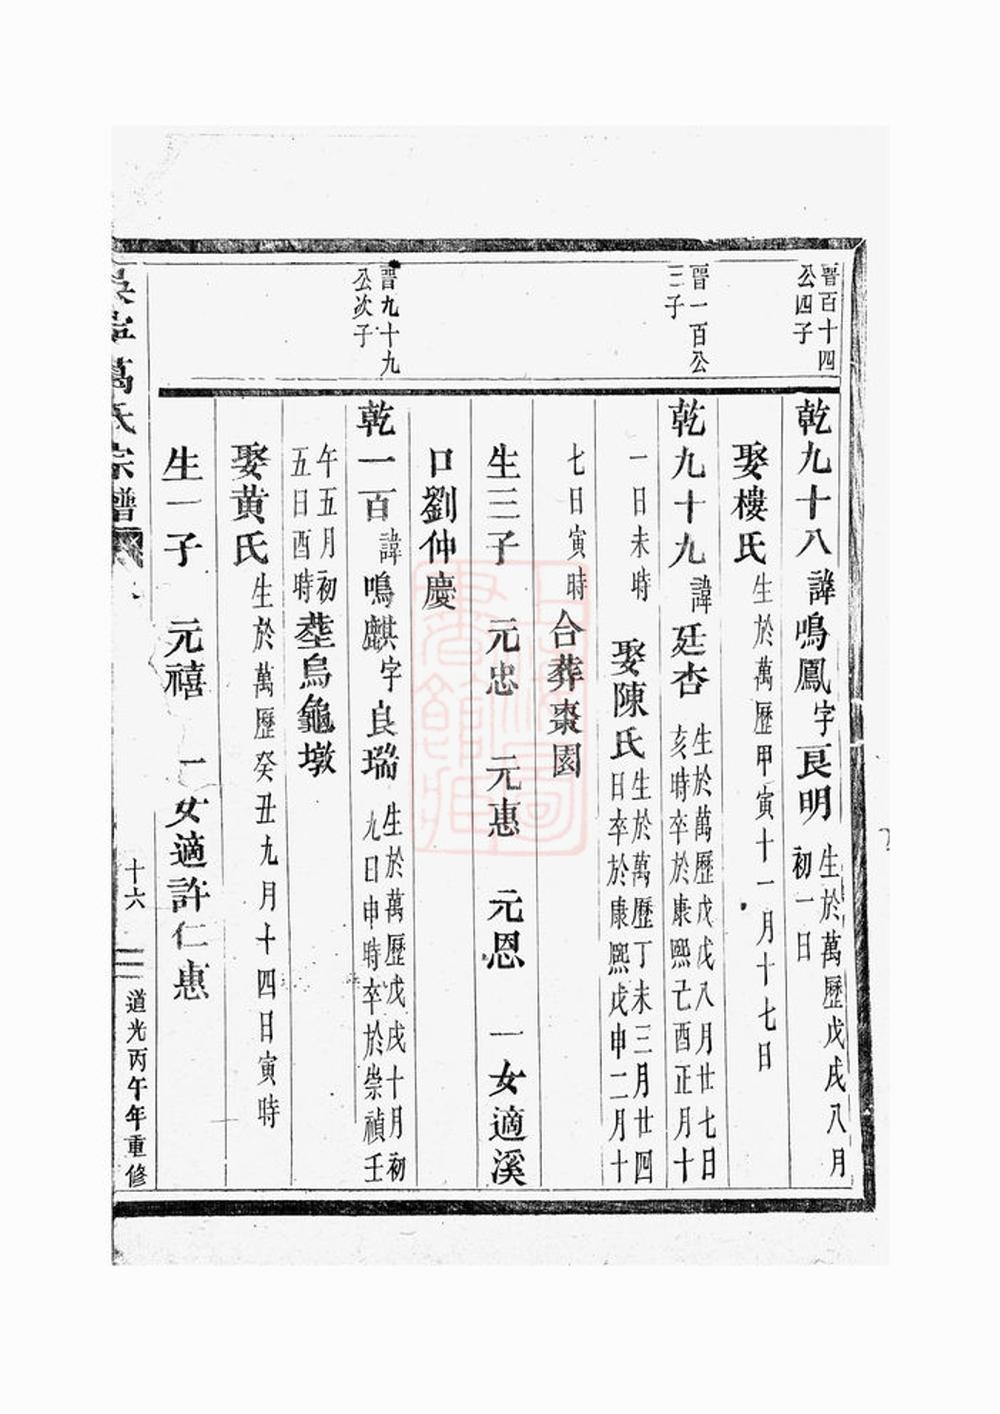 晉百十四
公四子
乾九十八諱鳴鳳字良明生於萬歷戊戌八月
初一日
娶樓氏生於萬歷甲寅十一月十七日
晉一百公
三子
乾九十九諱廷杏生於萬歷戊戌八月廿七日
亥時卒於康熙己酉正月十
一日未時娶陳氏生於萬歷丁未三月廿四
日卒於康熙戊申二月十
七日寅時合葬棗園
生三子元忠元惠元恩一女適溪
口劉仲慶
晉九十九
公次子
乾一百諱鳴麒字良瑞生於萬歷戊戌十月初
九日申時卒於崇禎壬
午五月初
五日酉時塟烏龜墩
娶黄氏生於萬歷癸丑九月十四日寅時
生一子元禧一女適許仁惠
吳寧萬氏宗譜
十六
道光丙午年重修
上海圖
書館藏